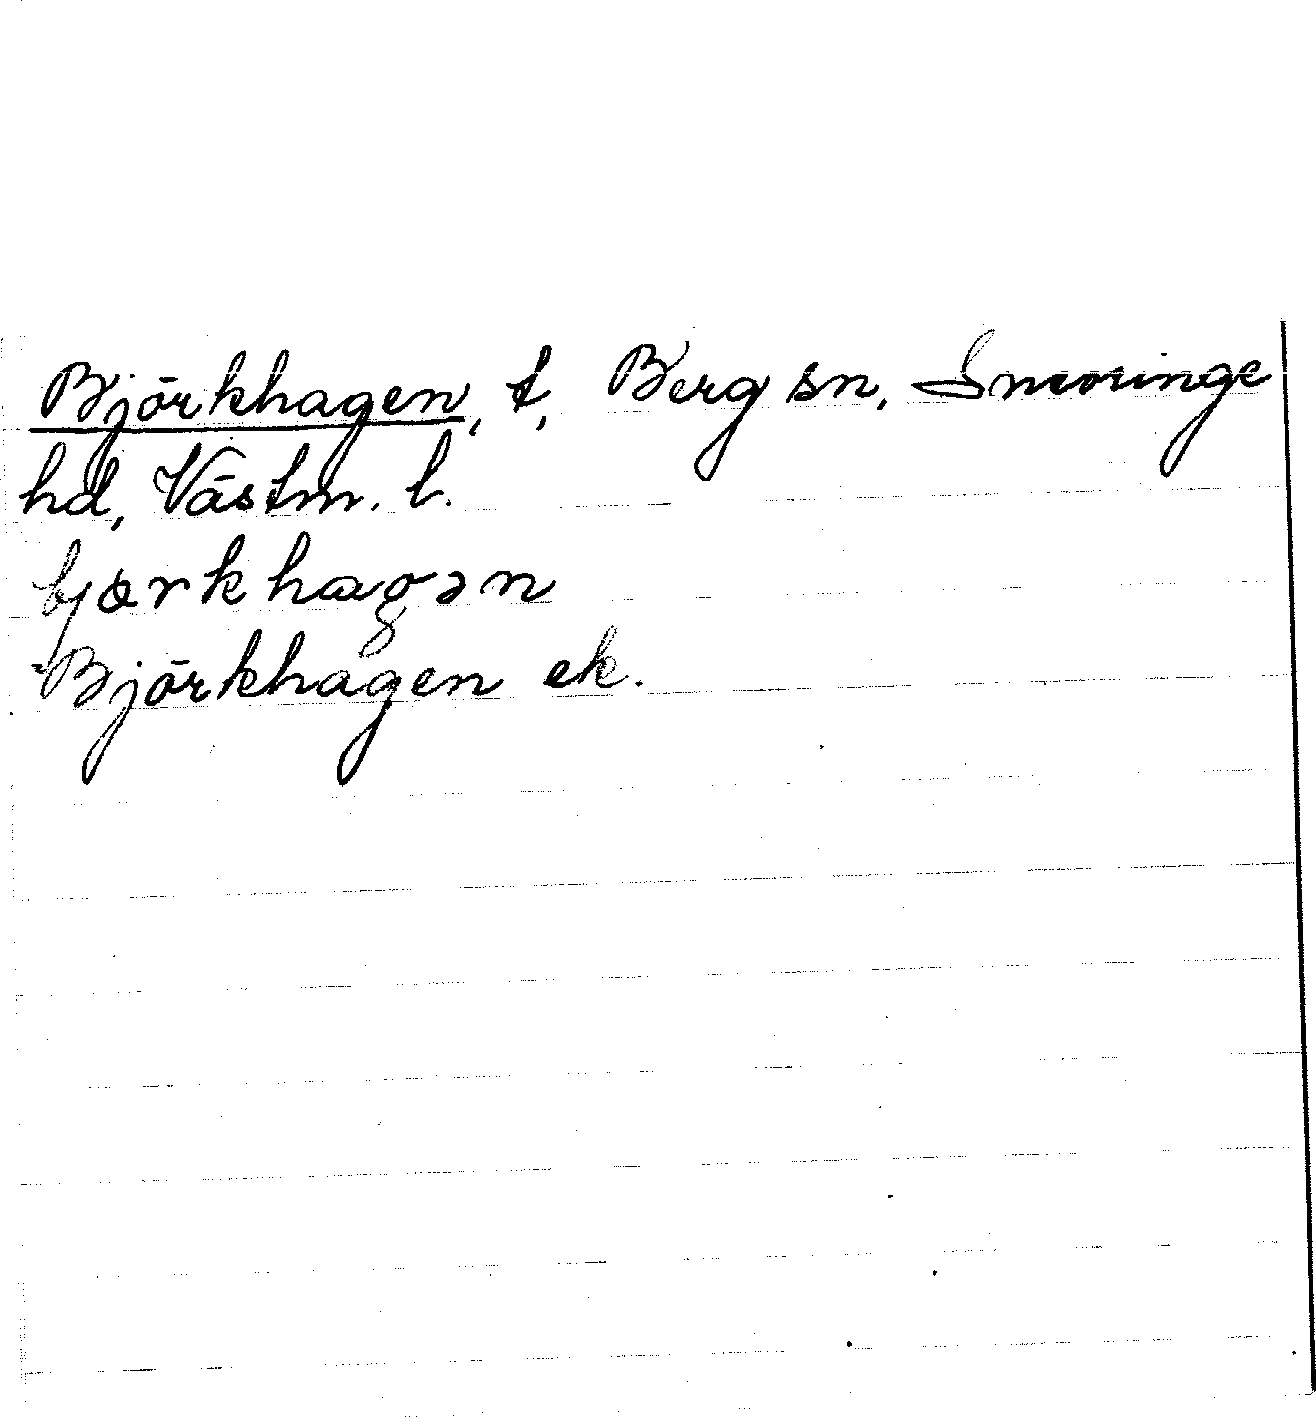 Björkhagen, t, Berg sn, Snevringe
hd, Västm. l.
bjørkhagən
Björkhagen ek.